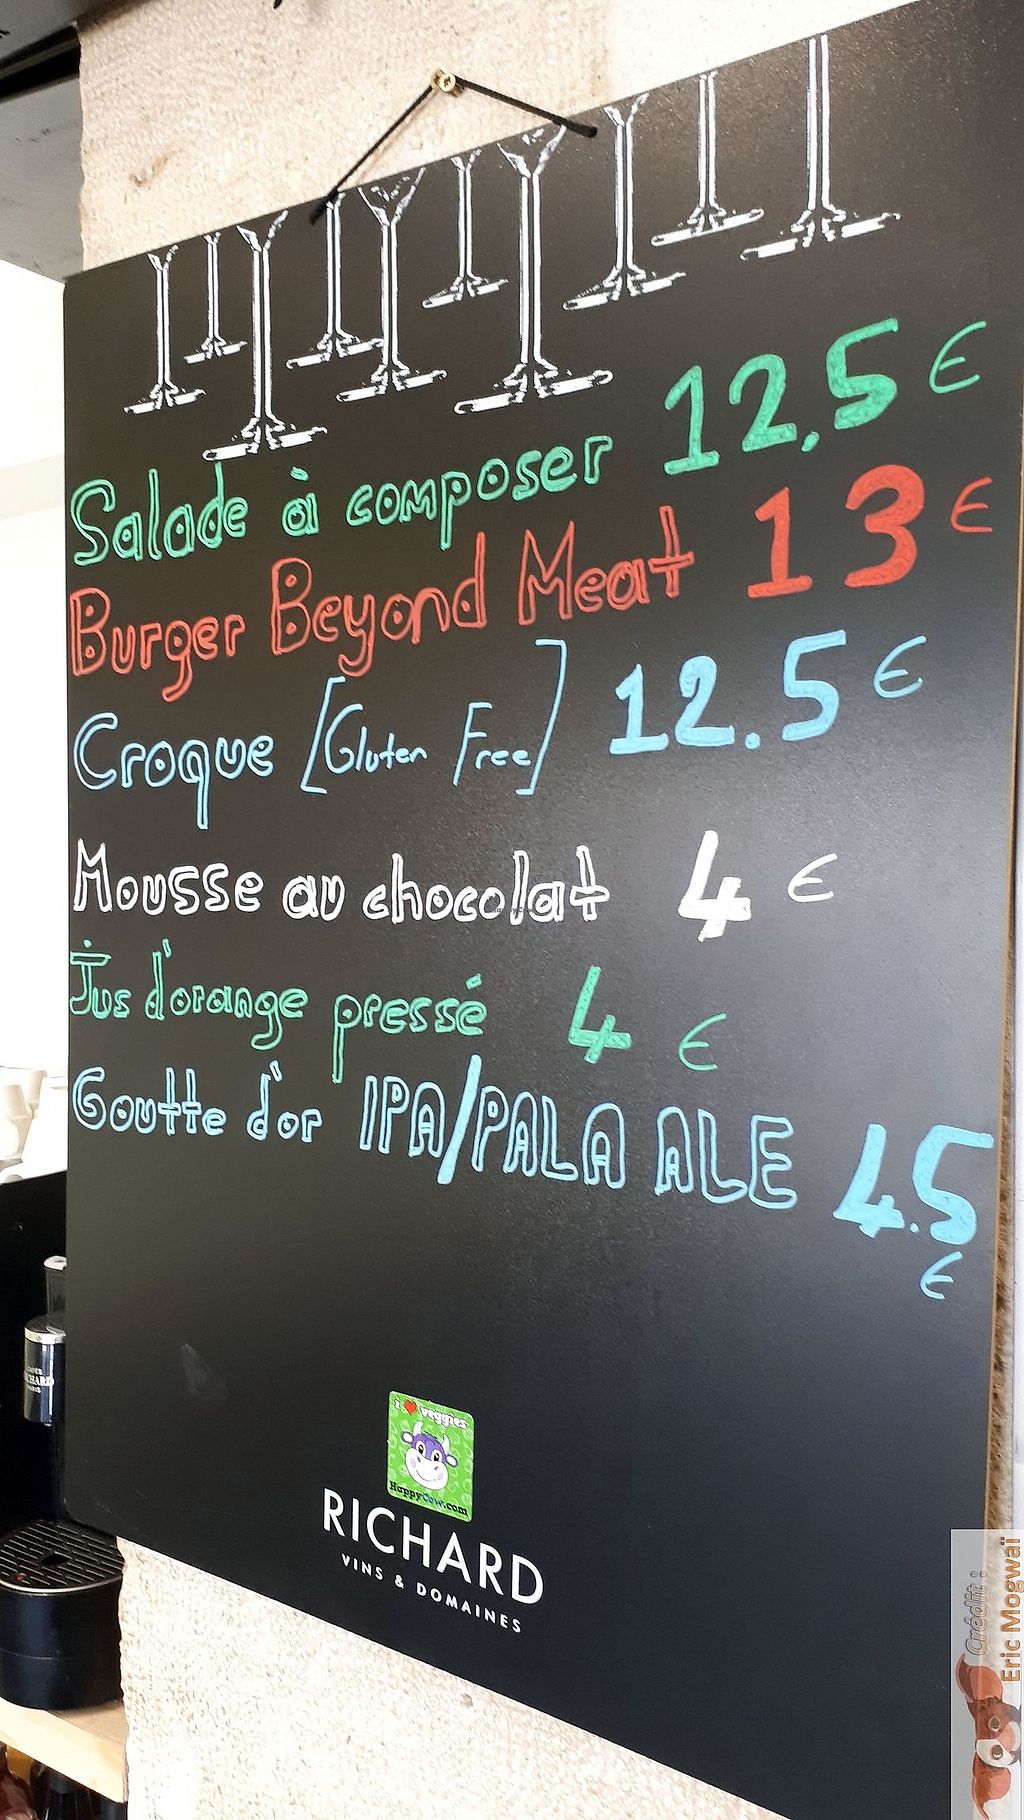 Salade à composer 12,5 €
Burger Beyond Meat 13 €
Croque [Gluten Free] 12.5 €
Mousse au chocolat 4 €
Jus d'orange pressé 4 €
Goutte d'or IPA/PALA ALE 4.5 €
i ❤ veggies
HappyCow.com
RICHARD
VINS & DOMAINES
Crédit :
Eric Mogwaï